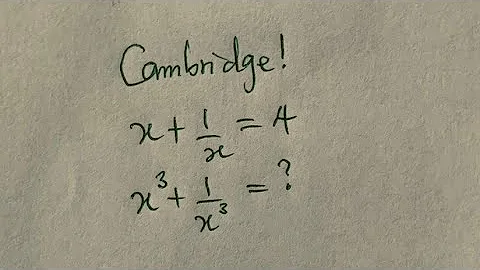 Cambridge!
x + 1/x = 4
x³ + 1/x³ = ?